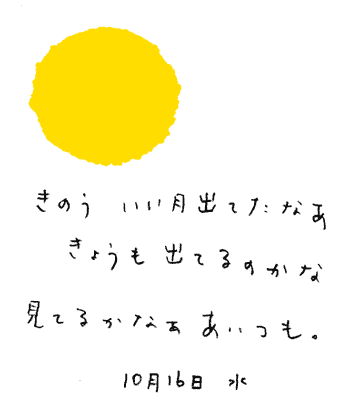 きのう いい月出てたなぁ
きょうも出てるのかな
見てるかなぁ あいつも。
10月16日 水